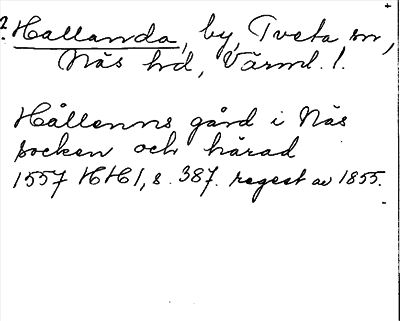 ?. Hallanda, by, Tveta sn,
Näs hd, Värml. l.
Hållenns gård i Näs
socken och härad
1557 HH1, s. 387. regest av 1855.